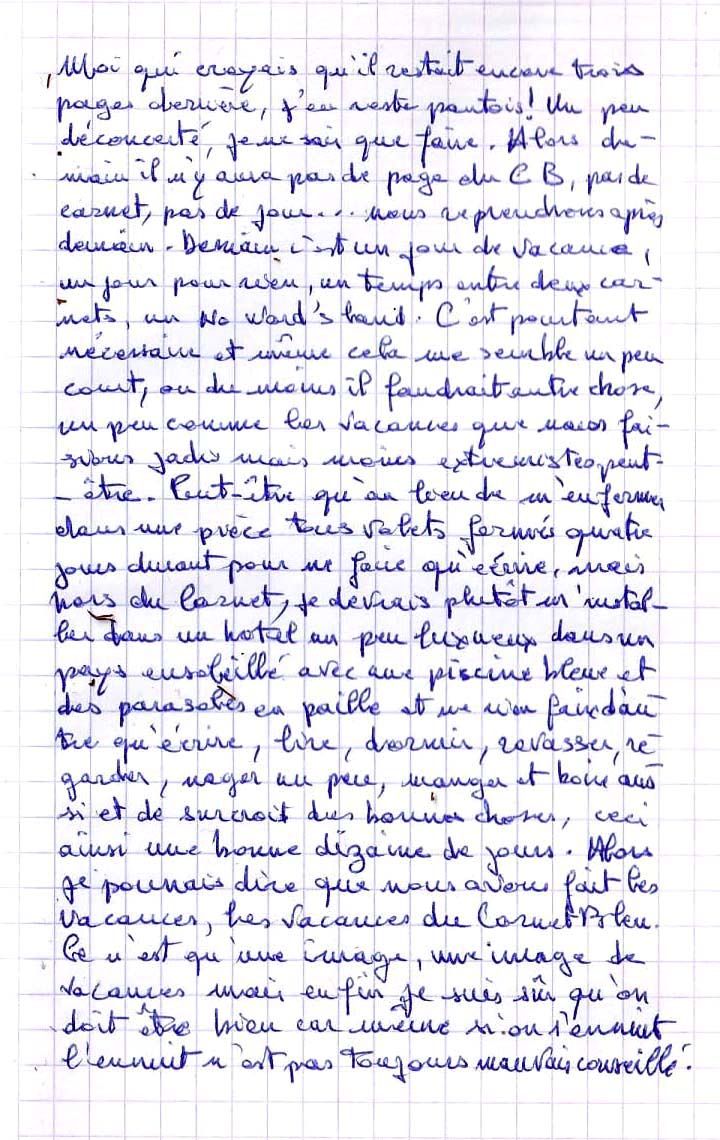 Moi qui croyais qu'il restait encore trois
pages derrière, j'en reste pantois! Un peu
déconcerté, je ne sais que faire. Alors de-
main il n'y aura pas de page du CB, pas de
carnet, pas de jour... nous reprendrons après
demain. Demain c'est un jour de vacance,
un jour pour rien, un temps entre deux car-
nets, un No Word's band. C'est pourtant
nécessaire et même cela me semble un peu
court, ou du moins il faudrait autre chose,
un peu comme les vacances que nous fai-
sions jadis mais moins extrémistes peut-
-être. Peut-être qu'au lieu de m'enfermer
dans une pièce tous volets fermés quatre
jours durant pour ne faire qu'écrire, mais
hors du Carnet, je devrais plutôt m'instal-
ler dans un hotel un peu luxueux dans un
pays ensoleillé avec une piscine bleue et
des parasoles en paille et ne rien faire d'au
tre qu'écrire, lire, dormir, ravasser, re
garder, nager un peu, manger et boire aus
si et de surcroit des bonnes choses, ceci
ainsi une bonne dizaine de jours. Alors
je pourrais dire que nous avons fait les
vacances, les vacances du Carnet Bleu.
Ce n'est qu'une image, une image de
vacances mais enfin je suis sûr qu'on
doit être bien car même si on s'ennuit
l'ennuit n'est pas toujours mauvais conseillé.